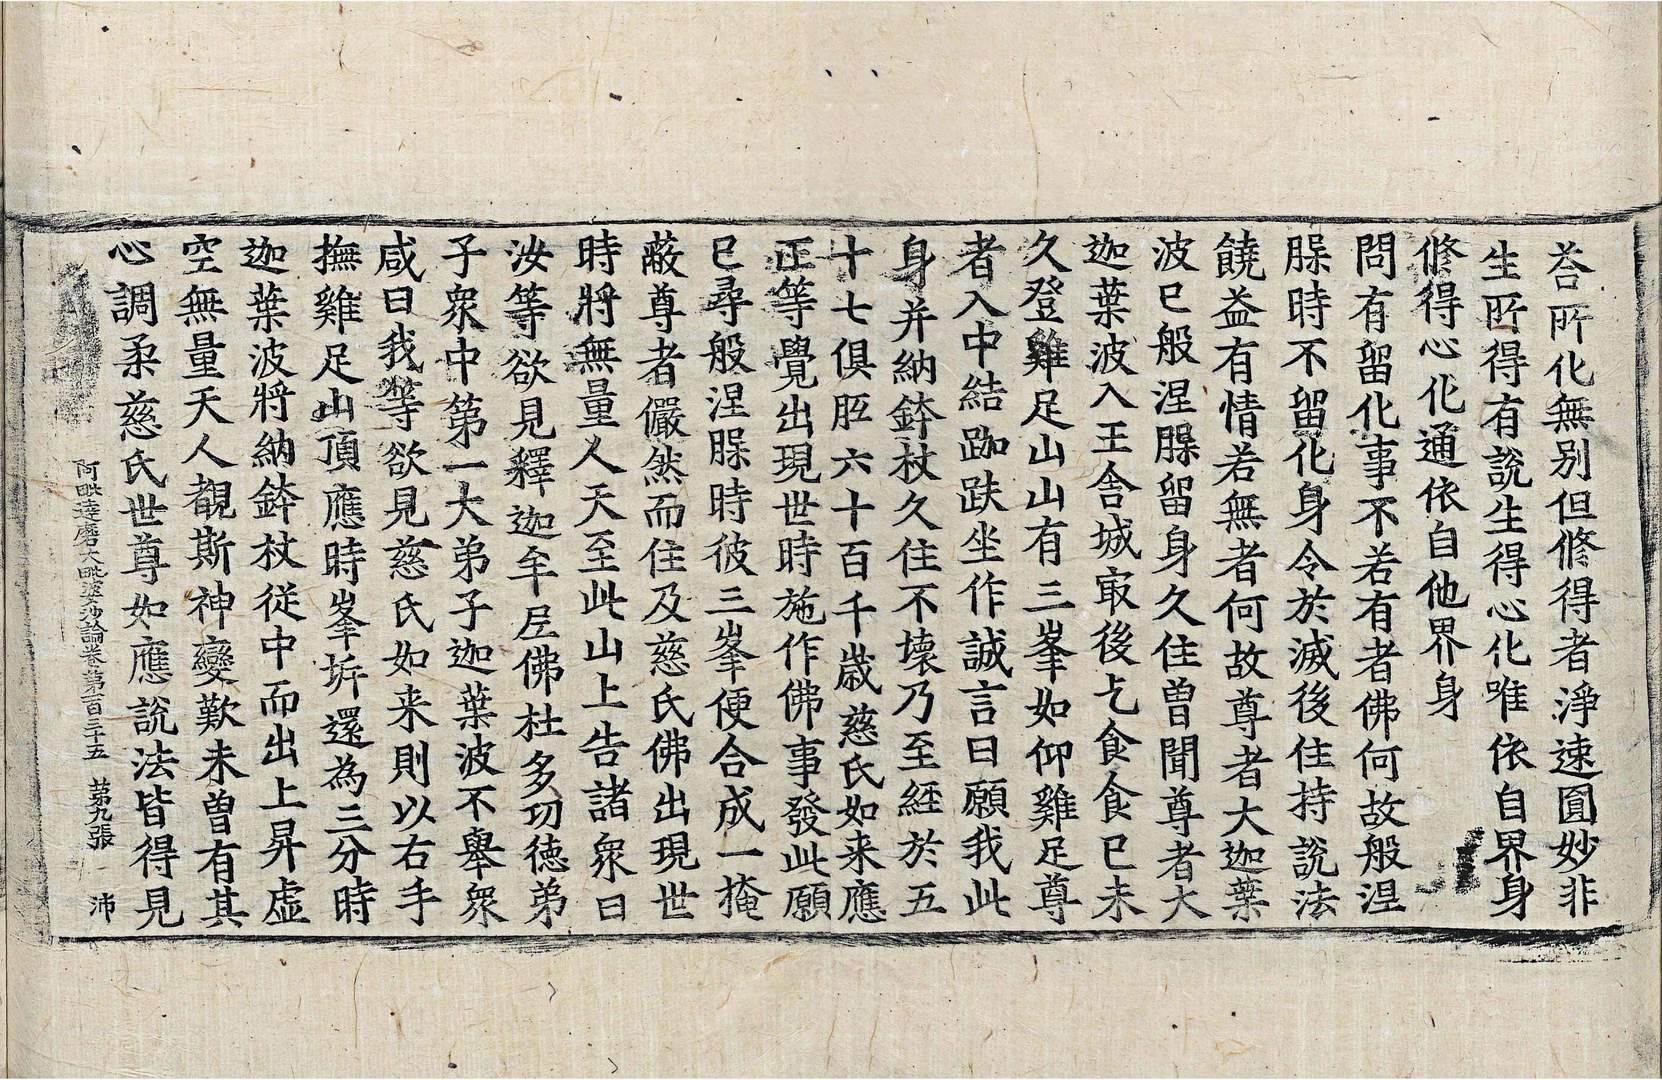 荅所化無別但修得者淨速圓妙非
生所得有說生得心化唯依自界身
修得心化通依自他界身
問有留化事不若有者佛何故般涅
槃時不留化身令於滅後住持說法
饒益有情若無者何故尊者大迦葉
波已般涅槃留身久住曾聞尊者大
迦葉波入王舍城㝡後乞食食已未
久登雞足山山有三峯如仰雞足尊
者入中結跏趺坐作誠言曰願我此
身并納鉢杖久住不壞乃至經於五
十七俱胝六十百千歳慈氏如来應
正等覺出現世時施作佛事發此願
已尋般涅槃時彼三峯便合成一掩
蔽尊者儼然而住及慈氏佛出現世
時將無量人天至此山上告諸衆曰
汝等欲見釋迦牟尼佛杜多功德弟
子衆中第一大弟子迦葉波不舉衆
咸曰我等欲見慈氏如来則以右手
撫雞足山頂應時峯坼還為三分時
迦葉波將納鉢杖從中而出上昇虛
空無量天人覩斯神變歎未曾有其
心調柔慈氏世尊如應說法皆得見
阿毗達磨大毗婆沙論卷第一百三十五 第九張 沛